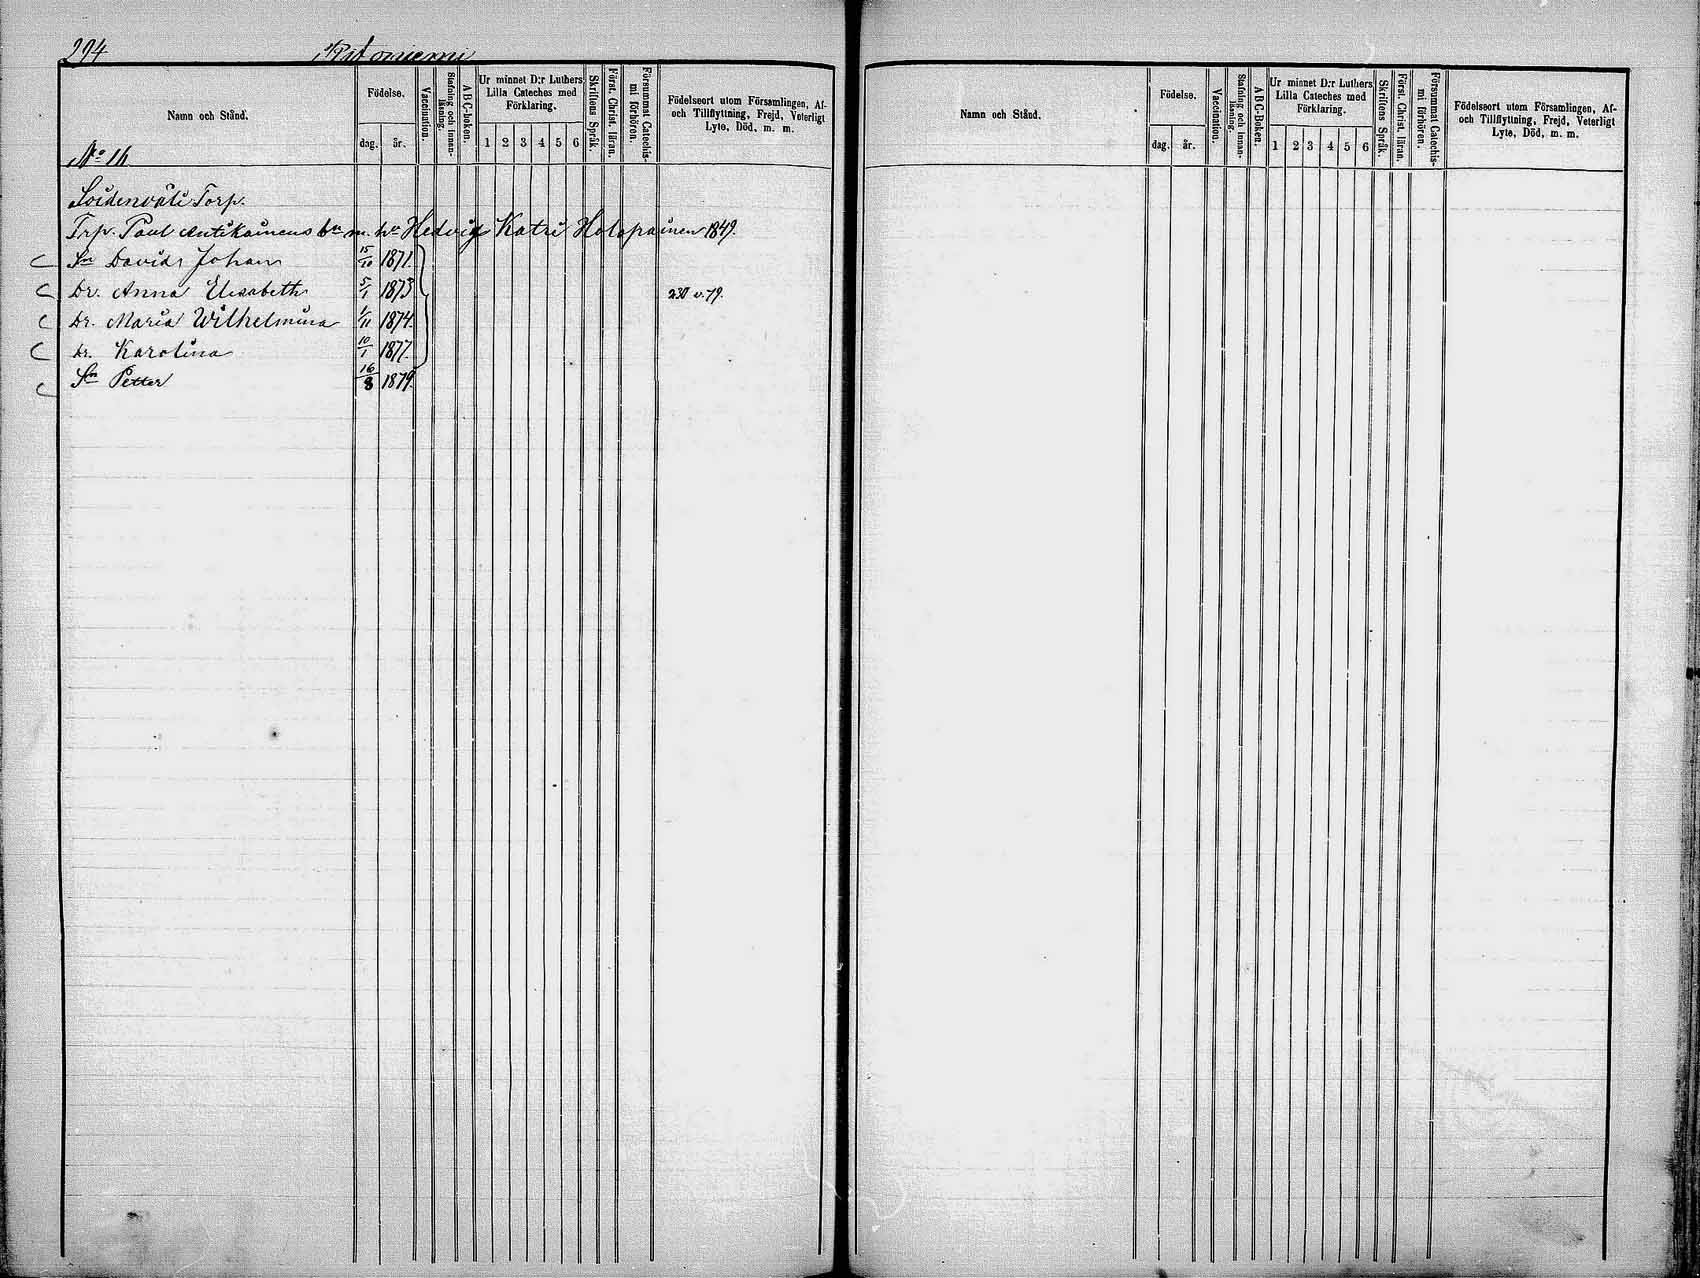 294 Ritoniemi
Namn och Stånd.
Födelse.
dag. år.
Vaccination.
Stafning och innan-läsning.
ABC-boken.
Ur minnet D:r Luthers
Lilla Cateches med
Förklaring.
1 2 3 4 5 6
Skriftens Språk.
Först. Christ. läran.
Försummat Catechis-mi förhören.
Födelseort utom Församlingen, Af-
och Tillflyttning, Frejd, Veterligt
Lyte, Död, m. m.
No 16
Soidenväli Torp.
Trp. Paul Antikainens bn m. hu Hedvig Katri Holopainen 1849.
Sn David Johan 15/10 1871.
Dr. Anna Elisabeth 5/1 1873 230 v. 79.
Dr. Maria Wilhelmina 1/11 1874.
Dr. Karolina 10/1 1877.
Sn Petter 16/8 1879.
Namn och Stånd.
Födelse.
dag. år.
Vaccination.
Stafning och innan-läsning.
ABC-Boken.
Ur minnet D:r Luthers
Lilla Cateches med
Förklaring.
1 2 3 4 5 6
Skriftens Språk.
Först. Christ. läran.
Försummat Catechis-mi förhören.
Födelseort utom Församlingen, Af-
och Tillflyttning, Frejd, Veterligt
Lyte, Död, m. m.